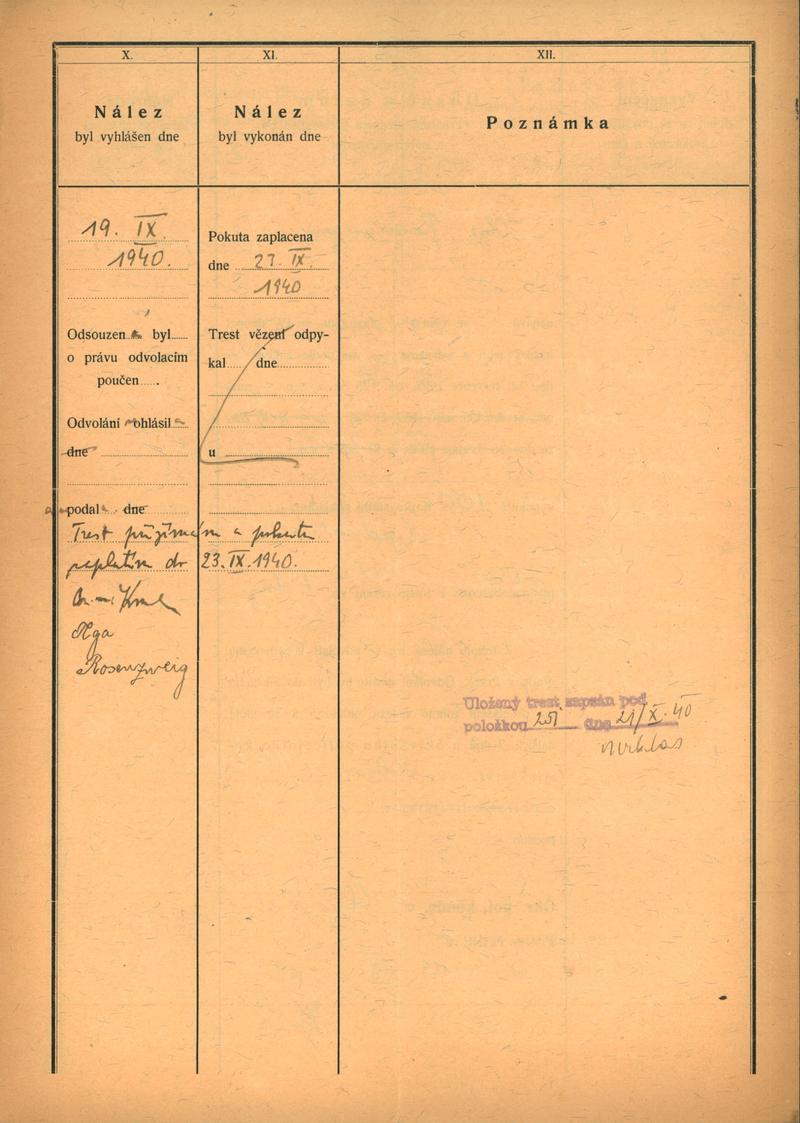 X.
Nález
byl vyhlášen dne
19. IX
1940.
Odsouzen byl
o právu odvolacím
poučen
Odvolání ohlásil
dne
podal dne
Trest přijímám a pokutu
zaplatím do 23. IX. 1940.
Olga
Rosenzweig
XI.
Nález
byl vykonán dne
Pokuta zaplacena
dne 23. IX.
1940
Trest vězení odpy-
kal dne
u
XII.
Poznámka
Uložený trest zapsán pod
položkou dne 21/X. 40